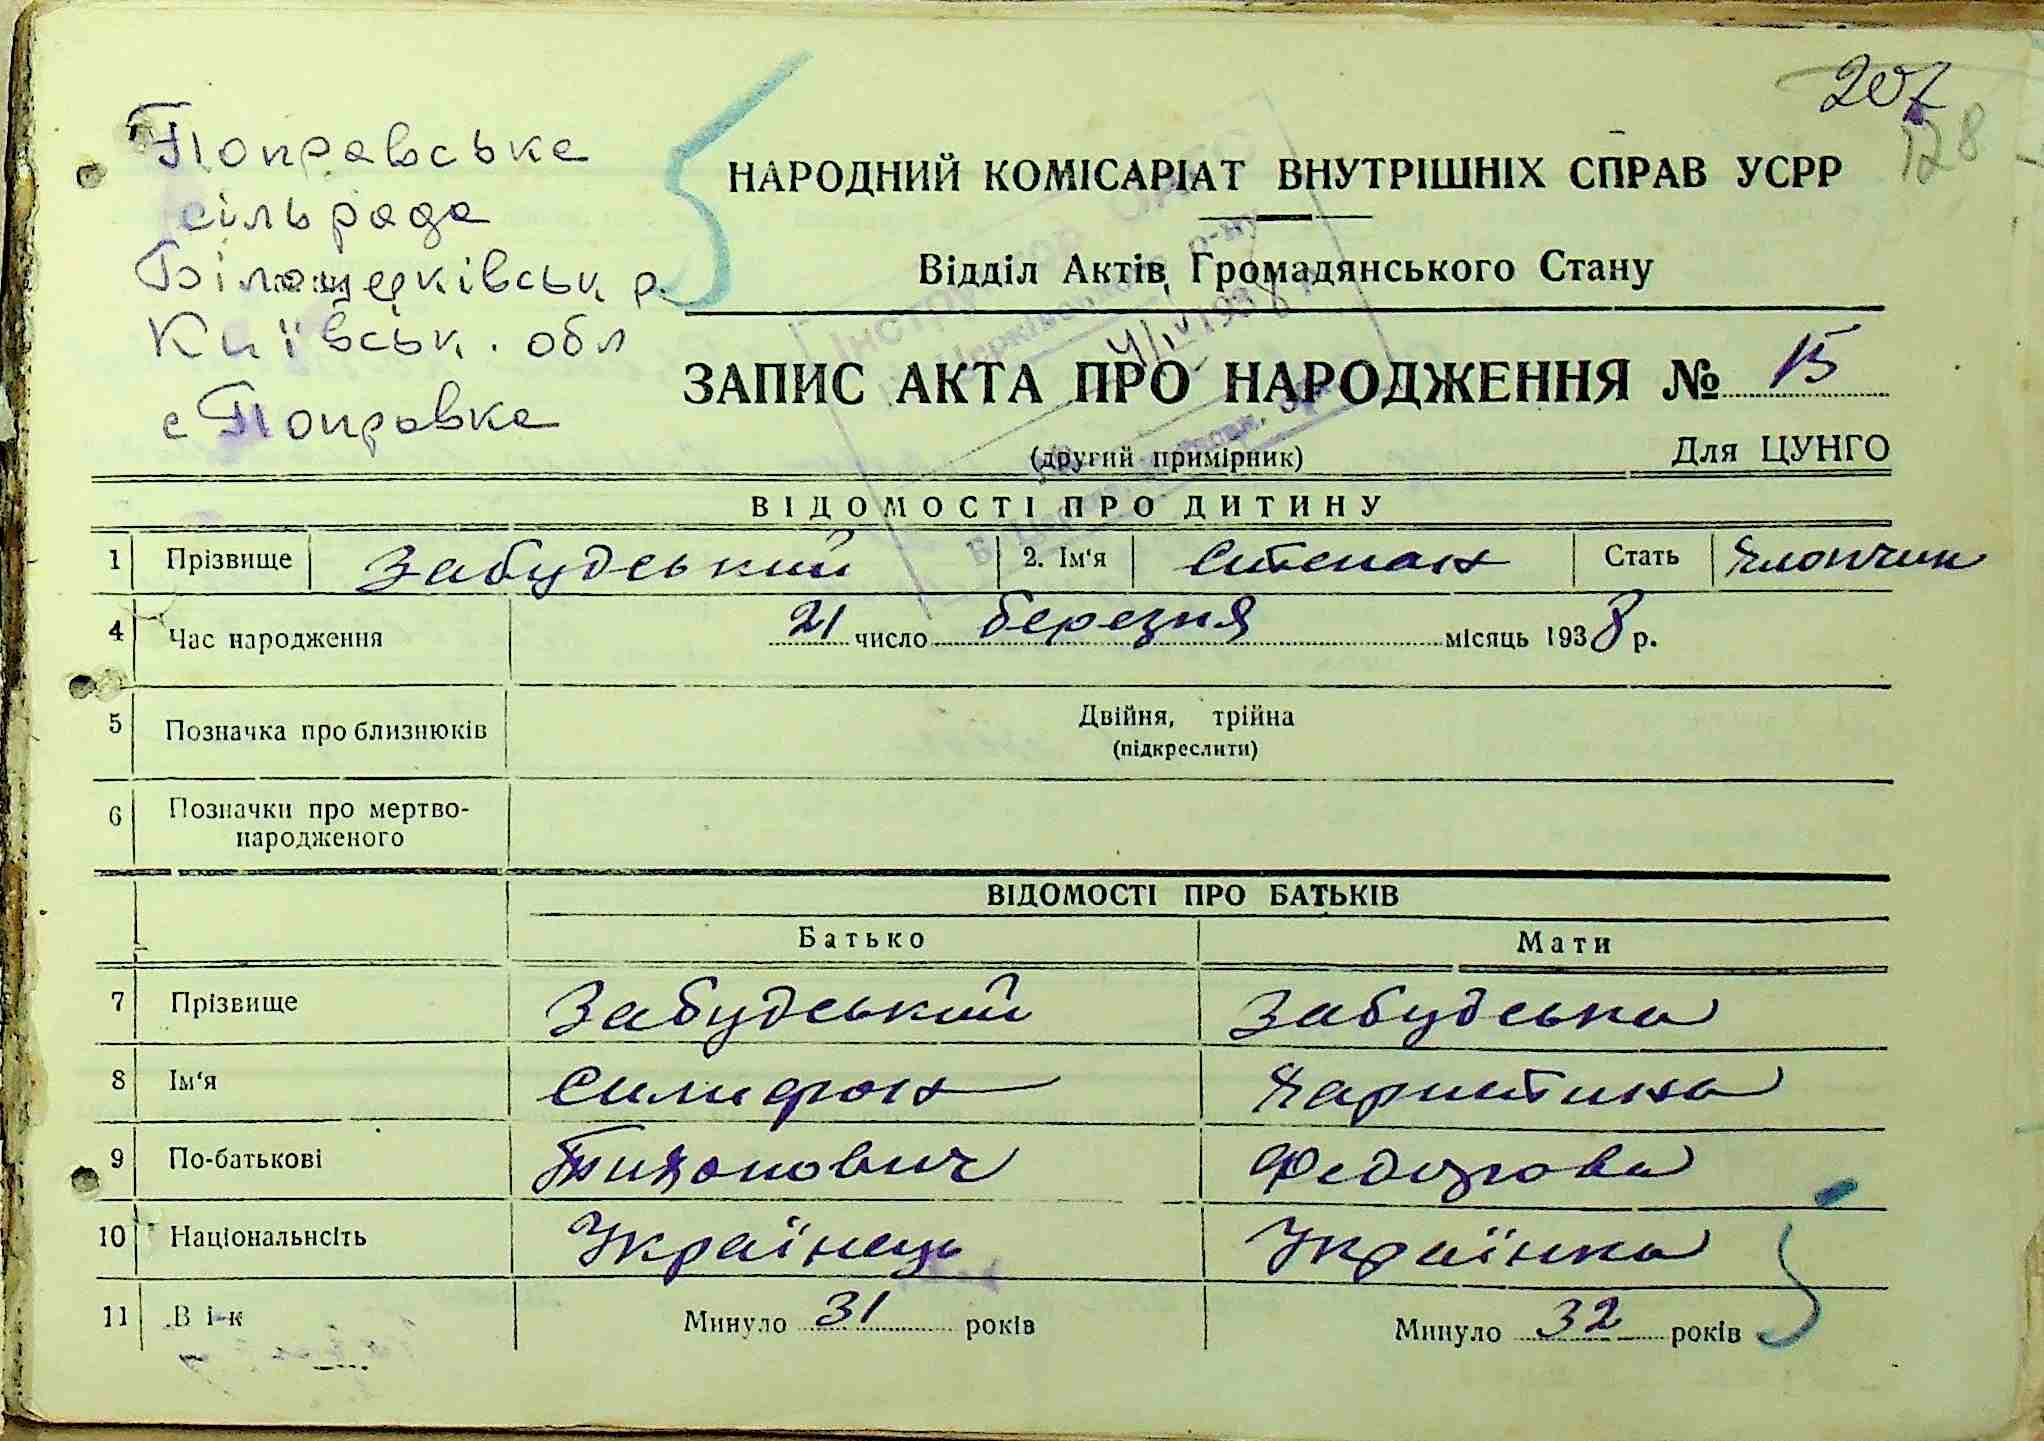 207
128
Поправська
сільрада
Білоцерківськ р.
Київськ. обл
с Поправка
НАРОДНИЙ КОМІСАРІАТ ВНУТРІШНІХ СПРАВ УСРР
Відділ Актів Громадянського Стану
ЗАПИС АКТА ПРО НАРОДЖЕННЯ № 15
(другий примірник)
Для ЦУНГО
ВІДОМОСТІ ПРО ДИТИНУ
1 Прізвище Забудський 2. Ім'я Степан Стать Хлопчик
4 Час народження 21 число березня місяць 1938 р.
5 Позначка про близнюків Двійня, трійна
(підкреслити)
6 Позначки про мертво-
народженого
ВІДОМОСТІ ПРО БАТЬКІВ
Батько Мати
7 Прізвище Забудський Забудська
8 Ім'я Силифон Харитина
9 По-батькові Тихонович Федорова
10 Національнсіть Українець Українка
11 В і-к Минуло 31 років Минуло 32 років